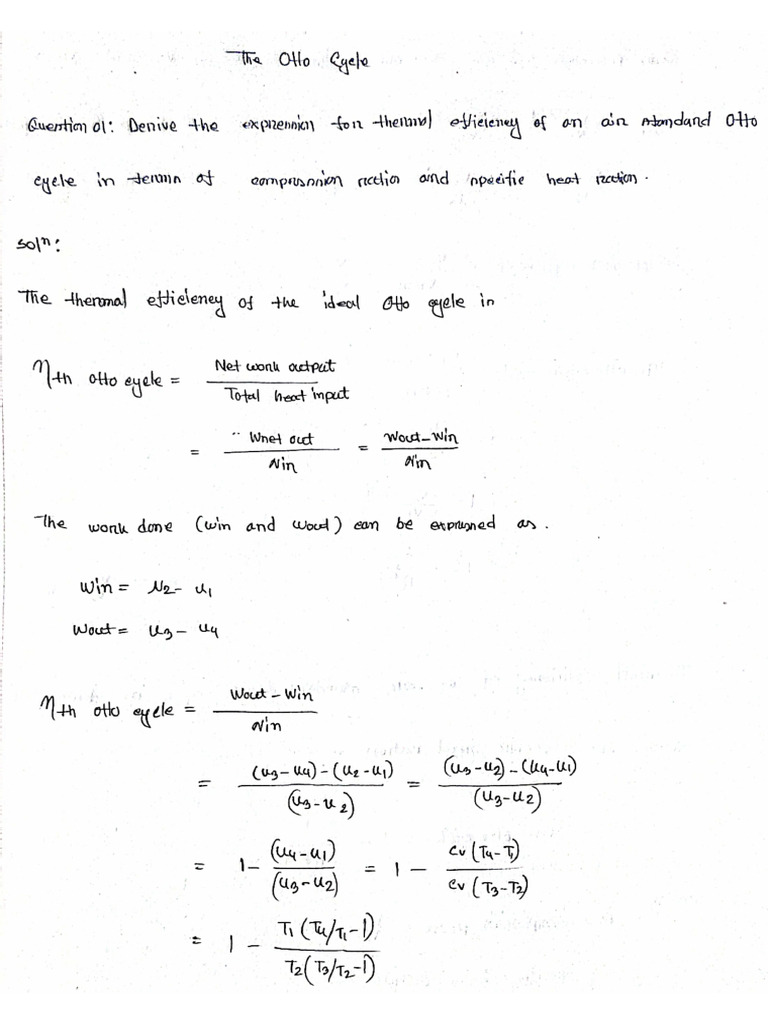 The Otto Cycle
Question 01: Derive the expression for thermal efficiency of an air standard Otto
cycle in terms of compression ratio and specific heat ratio.
Solⁿ:
The thermal efficiency of the ideal Otto cycle is
ηth otto cycle = Net work output / Total heat input
= Wnet out / qin = Wout - Win / qin
The work done (win and wout) can be expressed as.
Win = u2 - u1
Wout = u3 - u4
ηth otto cycle = Wout - Win / qin
= (u3 - u4) - (u2 - u1) / (u3 - u2) = (u3 - u2) - (u4 - u1) / (u3 - u2)
= 1 - (u4 - u1) / (u3 - u2) = 1 - cv (T4 - T1) / cv (T3 - T2)
= 1 - T1 (T4/T1 - 1) / T2 (T3/T2 - 1)